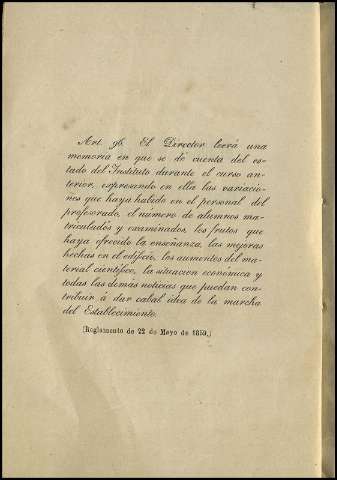 Art. 96. El Director leerá una
memoria en que se dé cuenta del es-
tado del Instituto durante el curso an-
terior, expresando en ella las variacio-
nes que haya habido en el personal del
profesorado, el número de alumnos ma-
triculados y examinados, los frutos que
haya ofrecido la enseñanza, las mejoras
hechas en el edificio, los aumentos del ma-
terial científico, la situacion económica y
todas las demás noticias que puedan con-
tribuir á dar cabal idea de la marcha
del Establecimiento.
(Reglamento de 22 de Mayo de 1859.)